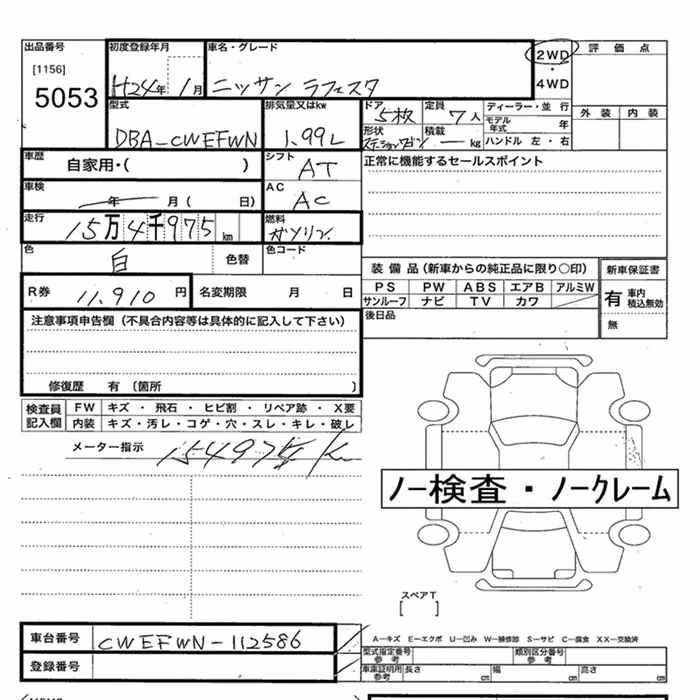 出品番号 初度登録年月 車名・グレード 2WD 評価点
[1156]
5053 H24年 1月 ニッサン ラフェスタ ・ 4WD
外装 内装
型式 排気量又はkw ドア 定員 ディーラー・並行
DBA-CWEFWN 1.99L 5枚 7人 モデル年式 年
形状 積載 ハンドル 左・右
ステーションワゴン — kg
車歴 自家用・( ) シフト AT 正常に機能するセールスポイント
車検 年 月( 日) AC AC
走行 15万4千975km 燃料 ガソリン
色 白 色替 色コード
装備品(新車からの純正品に限り〇印) 新車保証書
R券 11,910円 名変期限 月 日 PS PW ABS エアB アルミW 有 車内積込無効
サンルーフ ナビ TV カワ
注意事項申告欄(不具合内容等は具体的に記入して下さい) 後日品 無
修復歴 有〔箇所 〕
検査員記入欄 FW キズ・飛石・ヒビ割・リペア跡・X要
内装 キズ・汚レ・コゲ・穴・スレ・キレ・破レ
メーター指示 154975 Km
ノー検査・ノークレーム
スペアT
[ ]
車台番号 CWEFWN-112586
A-キズ E-エクボ U-凹み W-補修跡 S-サビ C-腐食 XX-交換済
登録番号 型式指定番号 参考 類別区分番号 参考
車庫証明用 参考 長さ cm 幅 cm 高さ cm